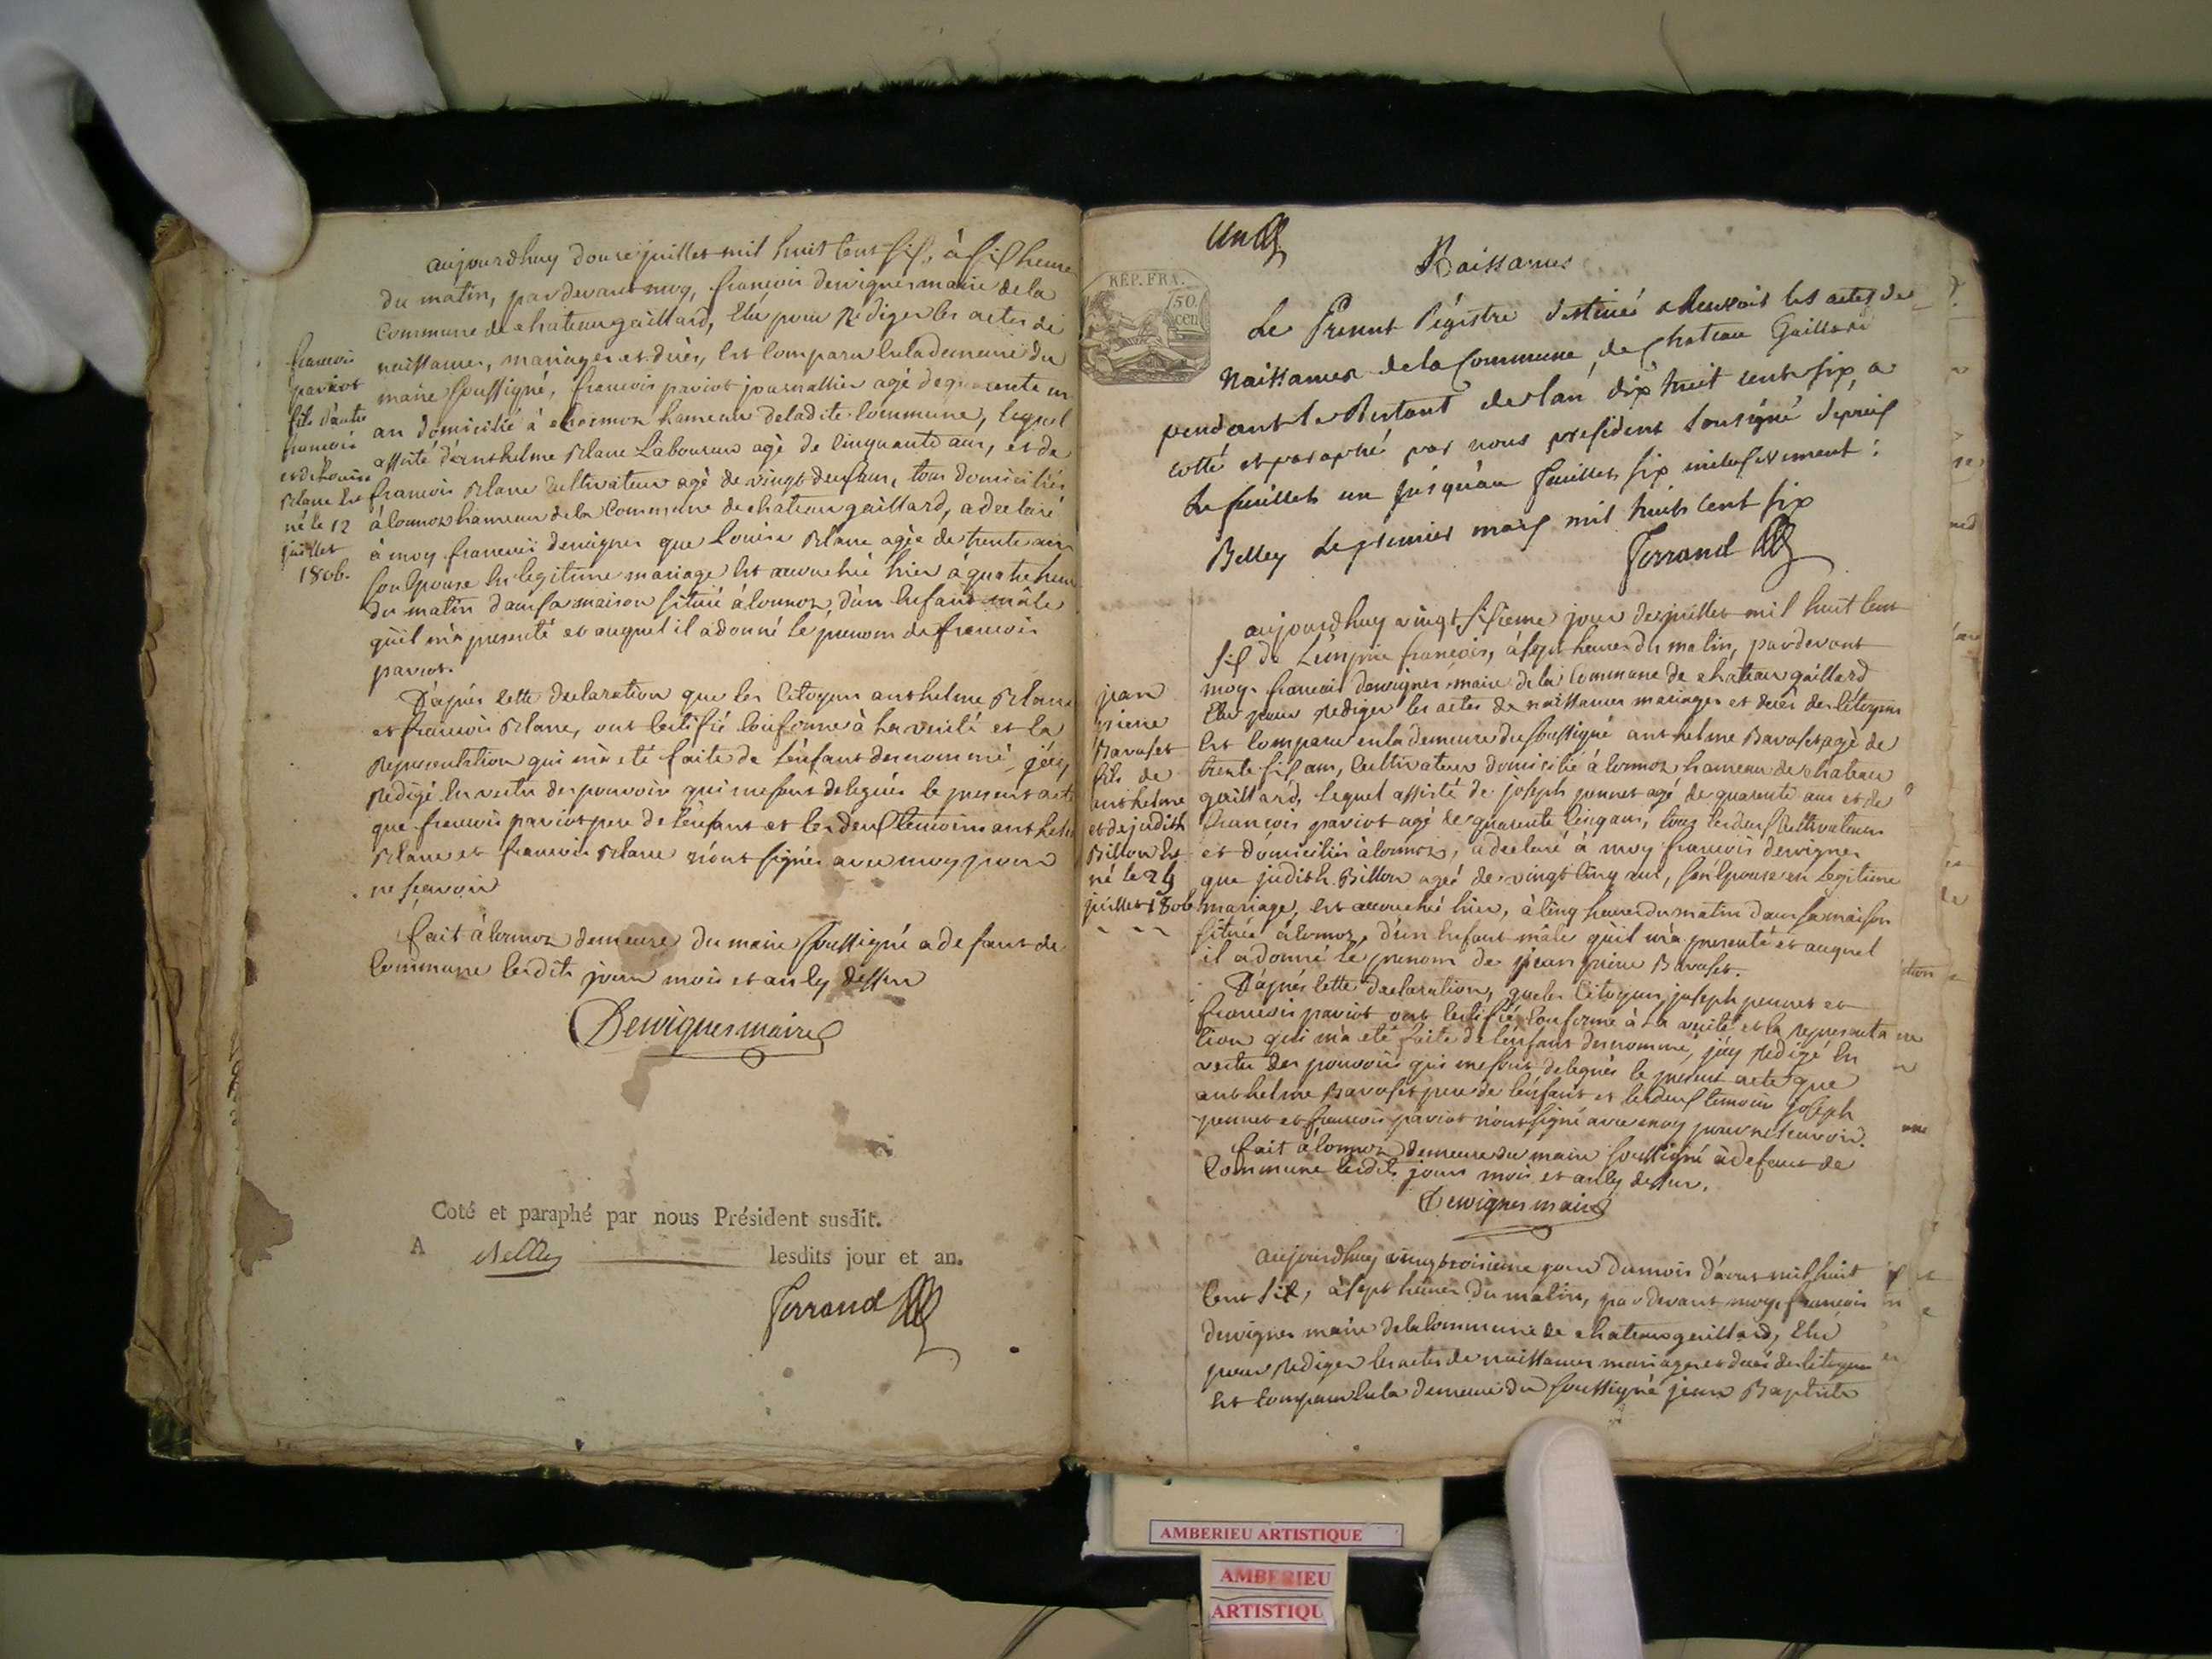 aujourdhuy douze juillet mil huit cent six, à six heures
du matin, pardevant moy, françois dervignes maire de la
Commune de chateau gaillard, Elu pour Rediger les actes de
naissances, mariages et décès, est comparu en la demeure du
maire soussigné, francois pariot journallier agé de quarente un
an domicilié à cormoz hameau de la dite commune, lequel
assisté d'anthelme Blanc Laboureur agé de cinquante ans, et de
francois Blanc cultivateur agé de vingt deux ans, tous domiciliés
à cormoz hameau de la Commune de chateau gaillard, a declaré
à moy francois dervignes que Louise Blanc agée de trente ans
son Epouse en legitime mariage est accouchée hier a quatre heures
du matin dans sa maison située à cormoz, d'un Enfant mâle
qu'il m'a presenté et auquel il a donné le prenom de francois
pariot.
francois
pariot
fils d'autre
francois
et de Louise
Blanc Est
né le 12
juillet
1806.
D'après cette declaration que les Citoyens anthelme Blanc
et francois Blanc, ont certifié conforme à la verité et la
Representation qui m'a eté faite de l'enfant denommé, j'ay
Redigé En vertu des pouvoirs qui me sont delegués le present acte
que francois pariot pere de l'enfant et les deux temoins anthelme
Blanc et francois Blanc n'ont signés avec moy pour
ne scavoir
fait à cormoz demeure du maire soussigné a defaut de
Commune lesdits jour mois et an cy dessus
Dervignes maire
Coté et paraphé par nous Président susdit.
A Belley lesdits jour et an.
Ferrand
un
REP. FRA.
50.
cen
Naissances
Le Present Régistre destiné a Recevoir les actes de
Naissances de la Commune, de Chateau Gaillard
pendant le Restant de l'an dix huit cent six, a
cotté et paraphé par nous president Sousigné depuis
Le feuillet un jusqu'au feuillet six inclusivement :
Belley Le premier mars mil huit cent six
Ferrand
aujourdhuy vingt sixieme jour de juillet mil huit cent
six de L'empire francois, à sept heures du matin, pardevant
moy francois dervignes maire de la Commune de chateau gaillard
Elu pour Rediger les actes de naissances mariages et décès des Citoyens
Est comparu en la demeure du soussigné anthelme Bavoset agé de
trente six ans, Cultivateur domicilié à cormoz hameau de chateau
gaillard, lequel assisté de joseph pennet agé de quarente ans et de
francois pariot agé de quarente cinq ans, tous les deux Cultivateurs
et domiciliés à cormoz, a declaré à moy francois dervignes
que judith Billon ageé de vingt cinq ans, son Epouse en Legitime
mariage, est accouchée hier, à cinq heures du matin dans sa maison
située à cormoz, d'un Enfant mâle qu'il m'a presenté et auquel
il a donné le prenom de jean pierre Bavoset.
jean
pierre
Bavoset
fils de
anthelme
et de judith
Billon Est
né le 29
juillet 1806
D'après cette declaration, que les Citoyens joseph pennet et
francois pariot ont certifié conforme à la verité et la representa
tion qui m'a eté faite de l'enfant denommé, j'ay Redigé En
vertu des pouvoirs qui me sont delegués le present acte que
anthelme Bavoset pere de l'enfant et les deux temoins joseph
pennet et francois pariot n'ont signé avec moy pour ne scavoir.
fait à cormoz demeure du maire soussigné à defaut de
Commune lesdits jour mois et an cy dessus.
Dervignes maire
aujourdhuy vingtroisieme jour du mois d'aout mil huit
cent six, à sept heures du matin, pardevant moy, francois
dervignes maire de la Commune de chateau gaillard, Elu
pour Rediger les actes de naissances mariages et décès des Citoyens
Est comparu En la demeure du soussigné jean Baptiste
AMBERIEU ARTISTIQUE
AMBERIEU
ARTISTIQU